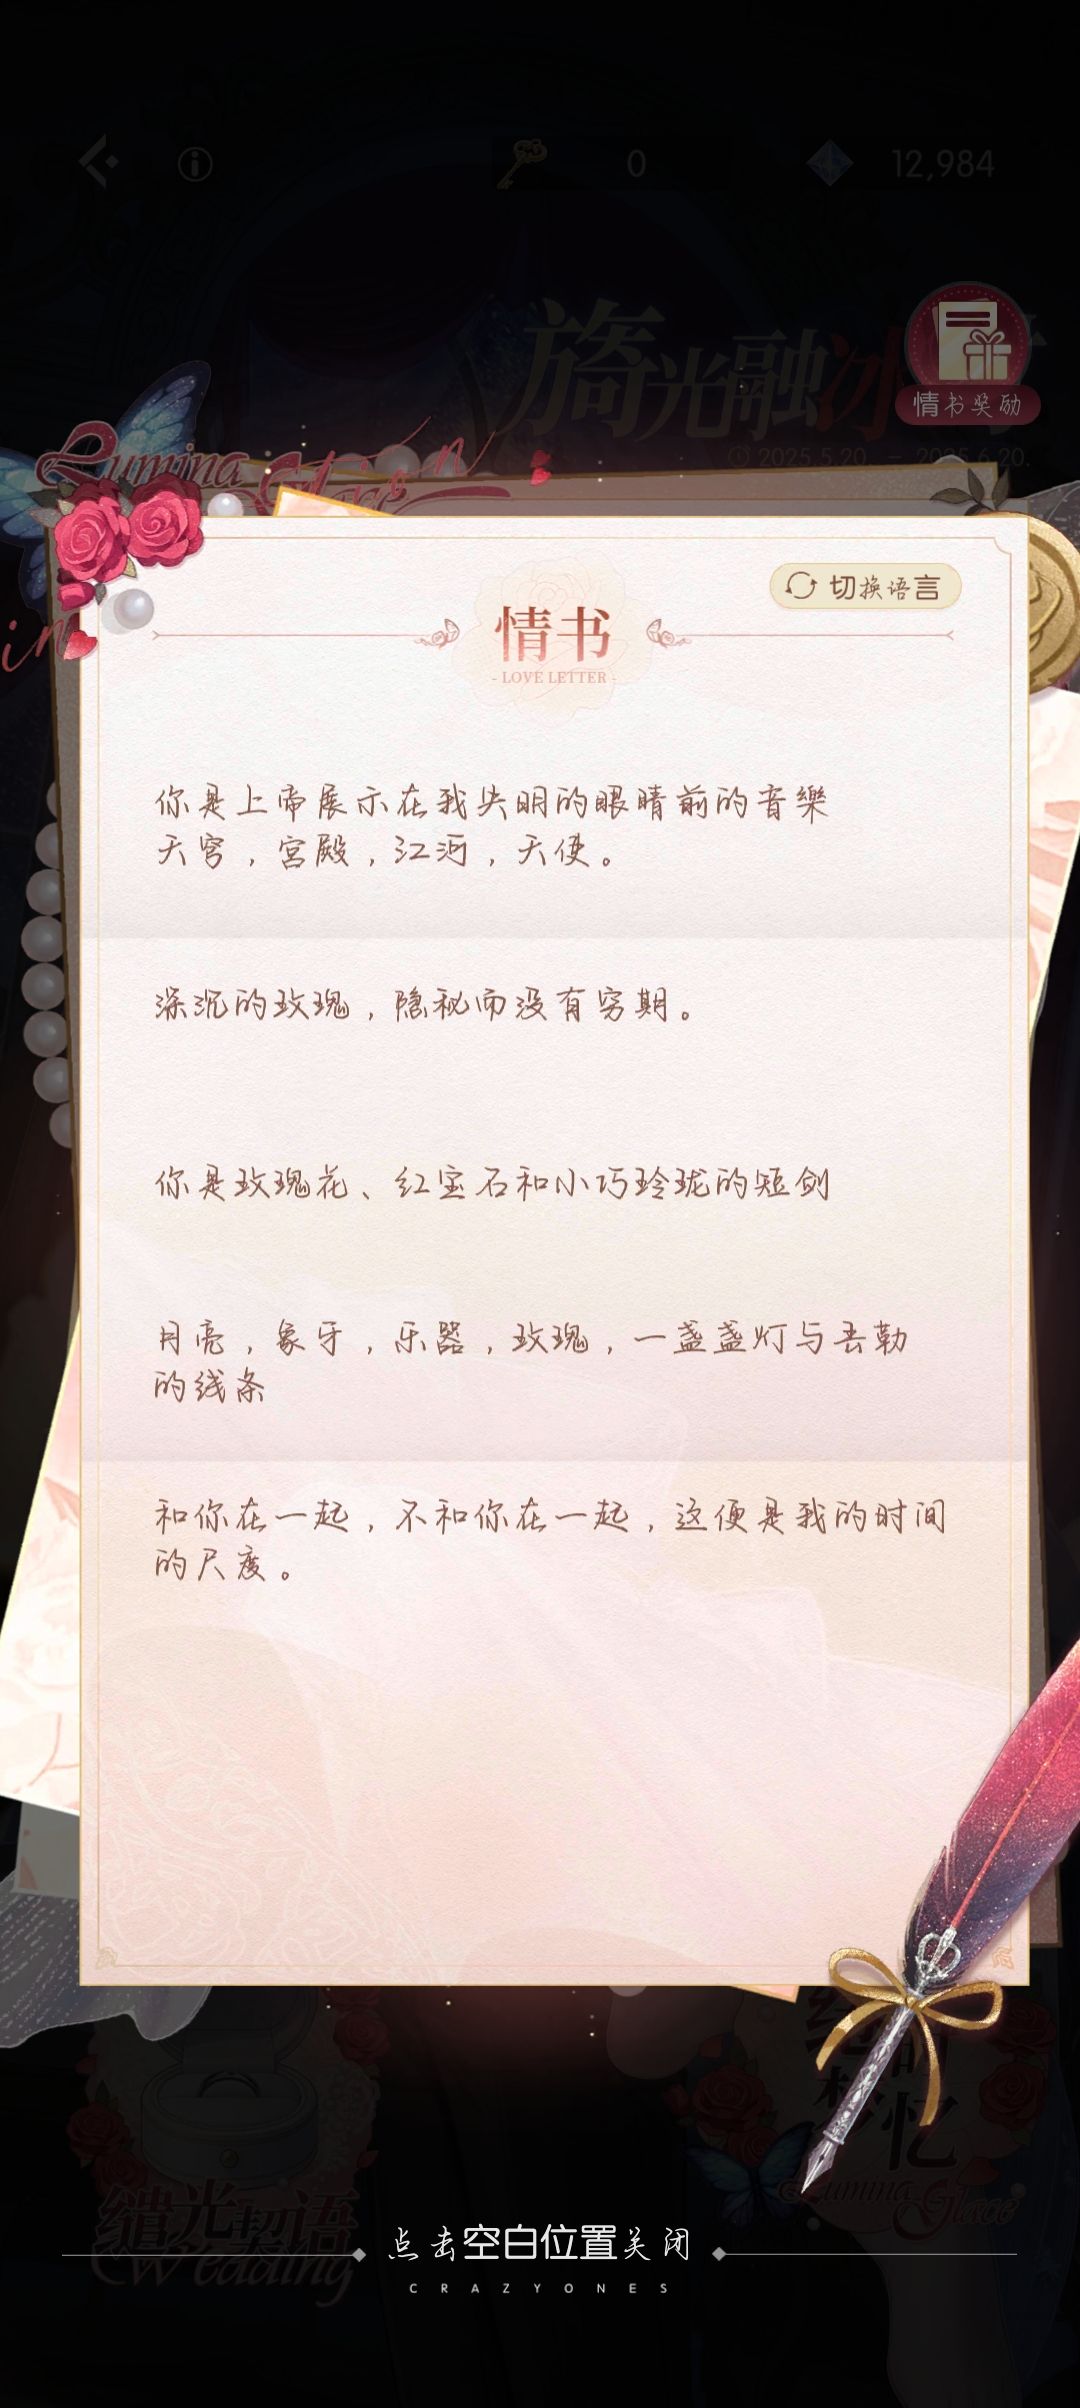 0
12,984
旖光融冰
情书奖励
2025.5.20. – 2025.6.20.
Lumina
切换语言
情书
- LOVE LETTER -
你是上帝展示在我失明的眼睛前的音樂
天穹，宫殿，江河，天使。
深沉的玫瑰，隐秘而没有穷期。
你是玫瑰花、红宝石和小巧玲珑的短剑
月亮，象牙，乐器，玫瑰，一盏盏灯与丢勒
的线条
和你在一起，不和你在一起，这便是我的时间
的尺度。
梦忆
Lumina
Glace
缱光契语
Wedding
点击空白位置关闭
CRAZYONES